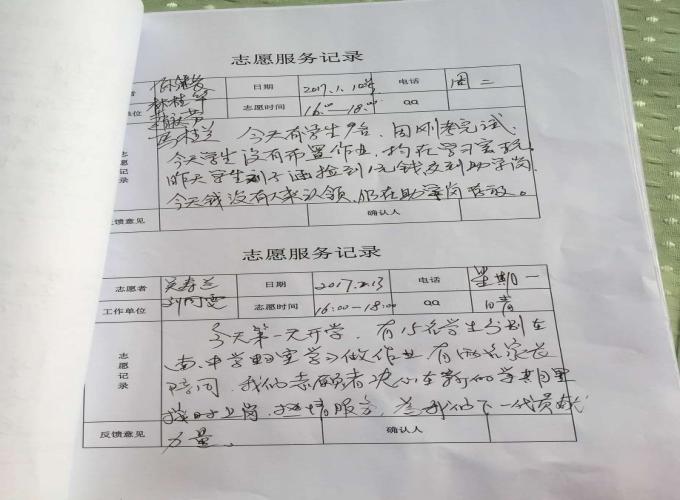 志愿服务记录
者 日期 2017.1.10 电话 周二
林桂军
单位 志愿时间 16:00-18:00 QQ
今天有学生9名,因刚考完试,
今天学生没有布置作业,均在学习表现。
昨天学生 捡到1元钱交到助学岗
今天钱没有人来认领,仍在助学岗存放。
志愿记录
反馈意见 确认人
志愿服务记录
志愿者 吴寿兰 日期 2017.2.13 电话 星期一
工作单位 志愿时间 16:00-18:00 QQ
今天第一天开学,有15名学生分别在
南、中学 室学习做作业,有两名家长
陪同,我们志愿者决心在新的学期里
按时上岗,热情服务,为我们下一代贡献
力量。
志愿记录
反馈意见 确认人